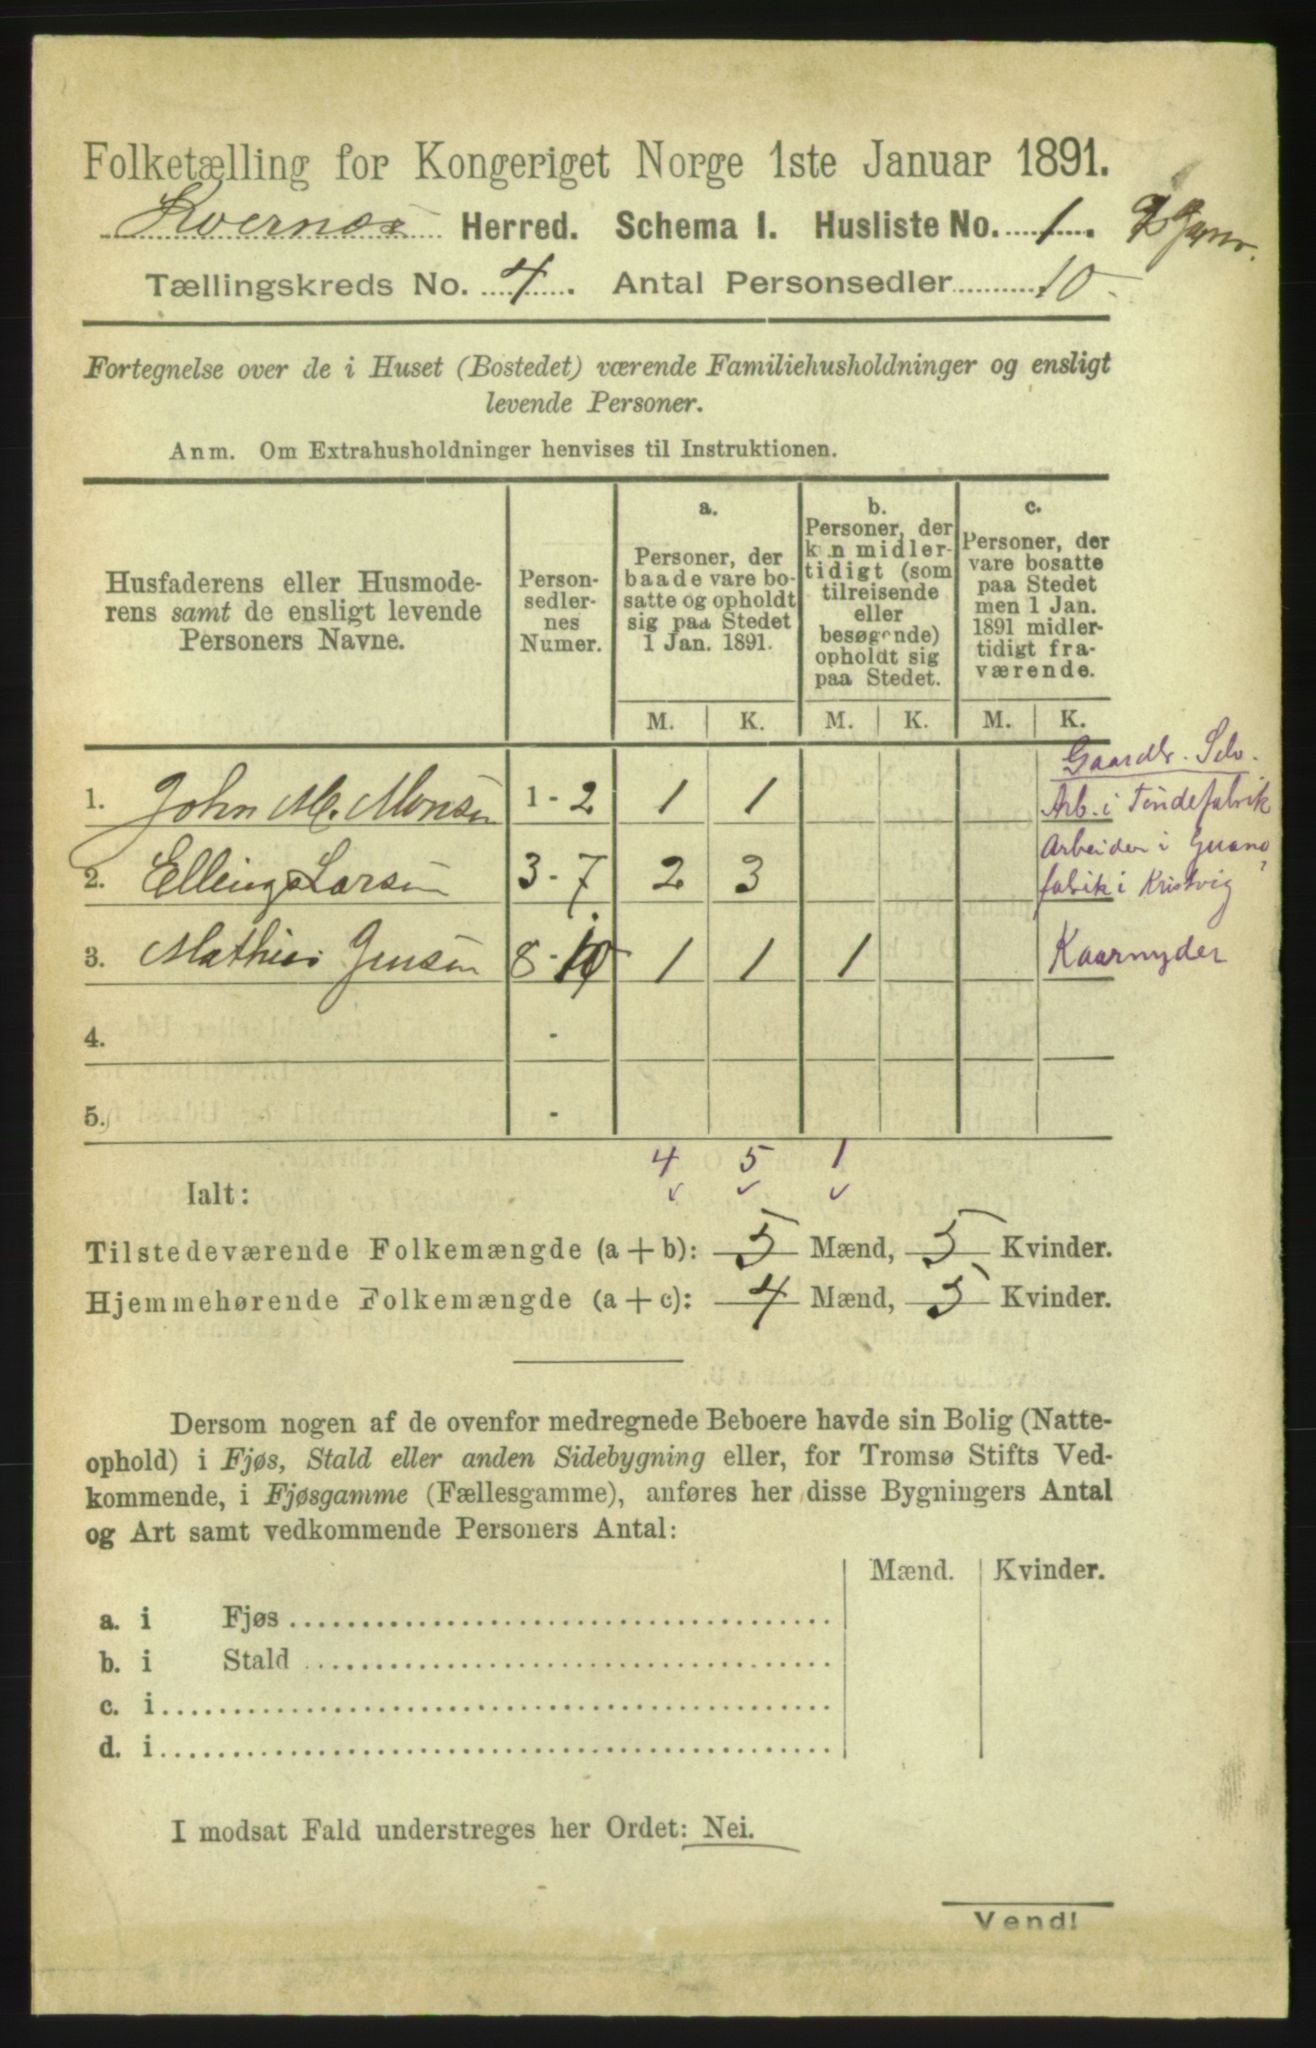 Folketælling for Kongeriget Norge 1ste Januar 1891.
Kvernes Herred. Schema I. Husliste No. 1.
Tællingskreds No. 4. Antal Personsedler 10.
Fortegnelse over de i Huset (Bostedet) værende Familiehusholdninger og ensligt
levende Personer.
Anm. Om Extrahusholdninger henvises til Instruktionen.
Husfaderens eller Husmode-
rens samt de ensligt levende
Personers Navne.
Person-
sedler-
nes
Numer.
a.
Personer, der
baade vare bo-
satte og opholdt
sig paa Stedet
1 Jan. 1891.
b.
Personer, der
kun midler-
tidigt (som
tilreisende
eller
besøgende)
opholdt sig
paa Stedet.
c.
Personer, der
vare bosatte
paa Stedet
men 1 Jan.
1891 midler-
tidigt fra-
værende.
M. K. M. K. M. K.
Gaardb. Selv.
1. John M. Monsen 1 - 2 1 1 Arb. i Töndefabrik
2. Elling Larsen 3 - 7 2 3 Arbeider i Guano
fabrik i Kristvig ?
3. Mathias Jensen 8 - 10 1 1 1 Kaarnyder
4. -
5. -
4 5 1
Ialt:
Tilstedeværende Folkemængde (a + b): 5 Mænd, 5 Kvinder.
Hjemmehørende Folkemængde (a + c): 4 Mænd, 5 Kvinder.
Dersom nogen af de ovenfor medregnede Beboere havde sin Bolig (Natte-
ophold) i Fjøs, Stald eller anden Sidebygning eller, for Tromsø Stifts Ved-
kommende, i Fjøsgamme (Fællesgamme), anføres her disse Bygningers Antal
og Art samt vedkommende Personers Antal:
Mænd. Kvinder.
a. i Fjøs
b. i Stald
c. i
d. i
I modsat Fald understreges her Ordet: Nei.
Vend!